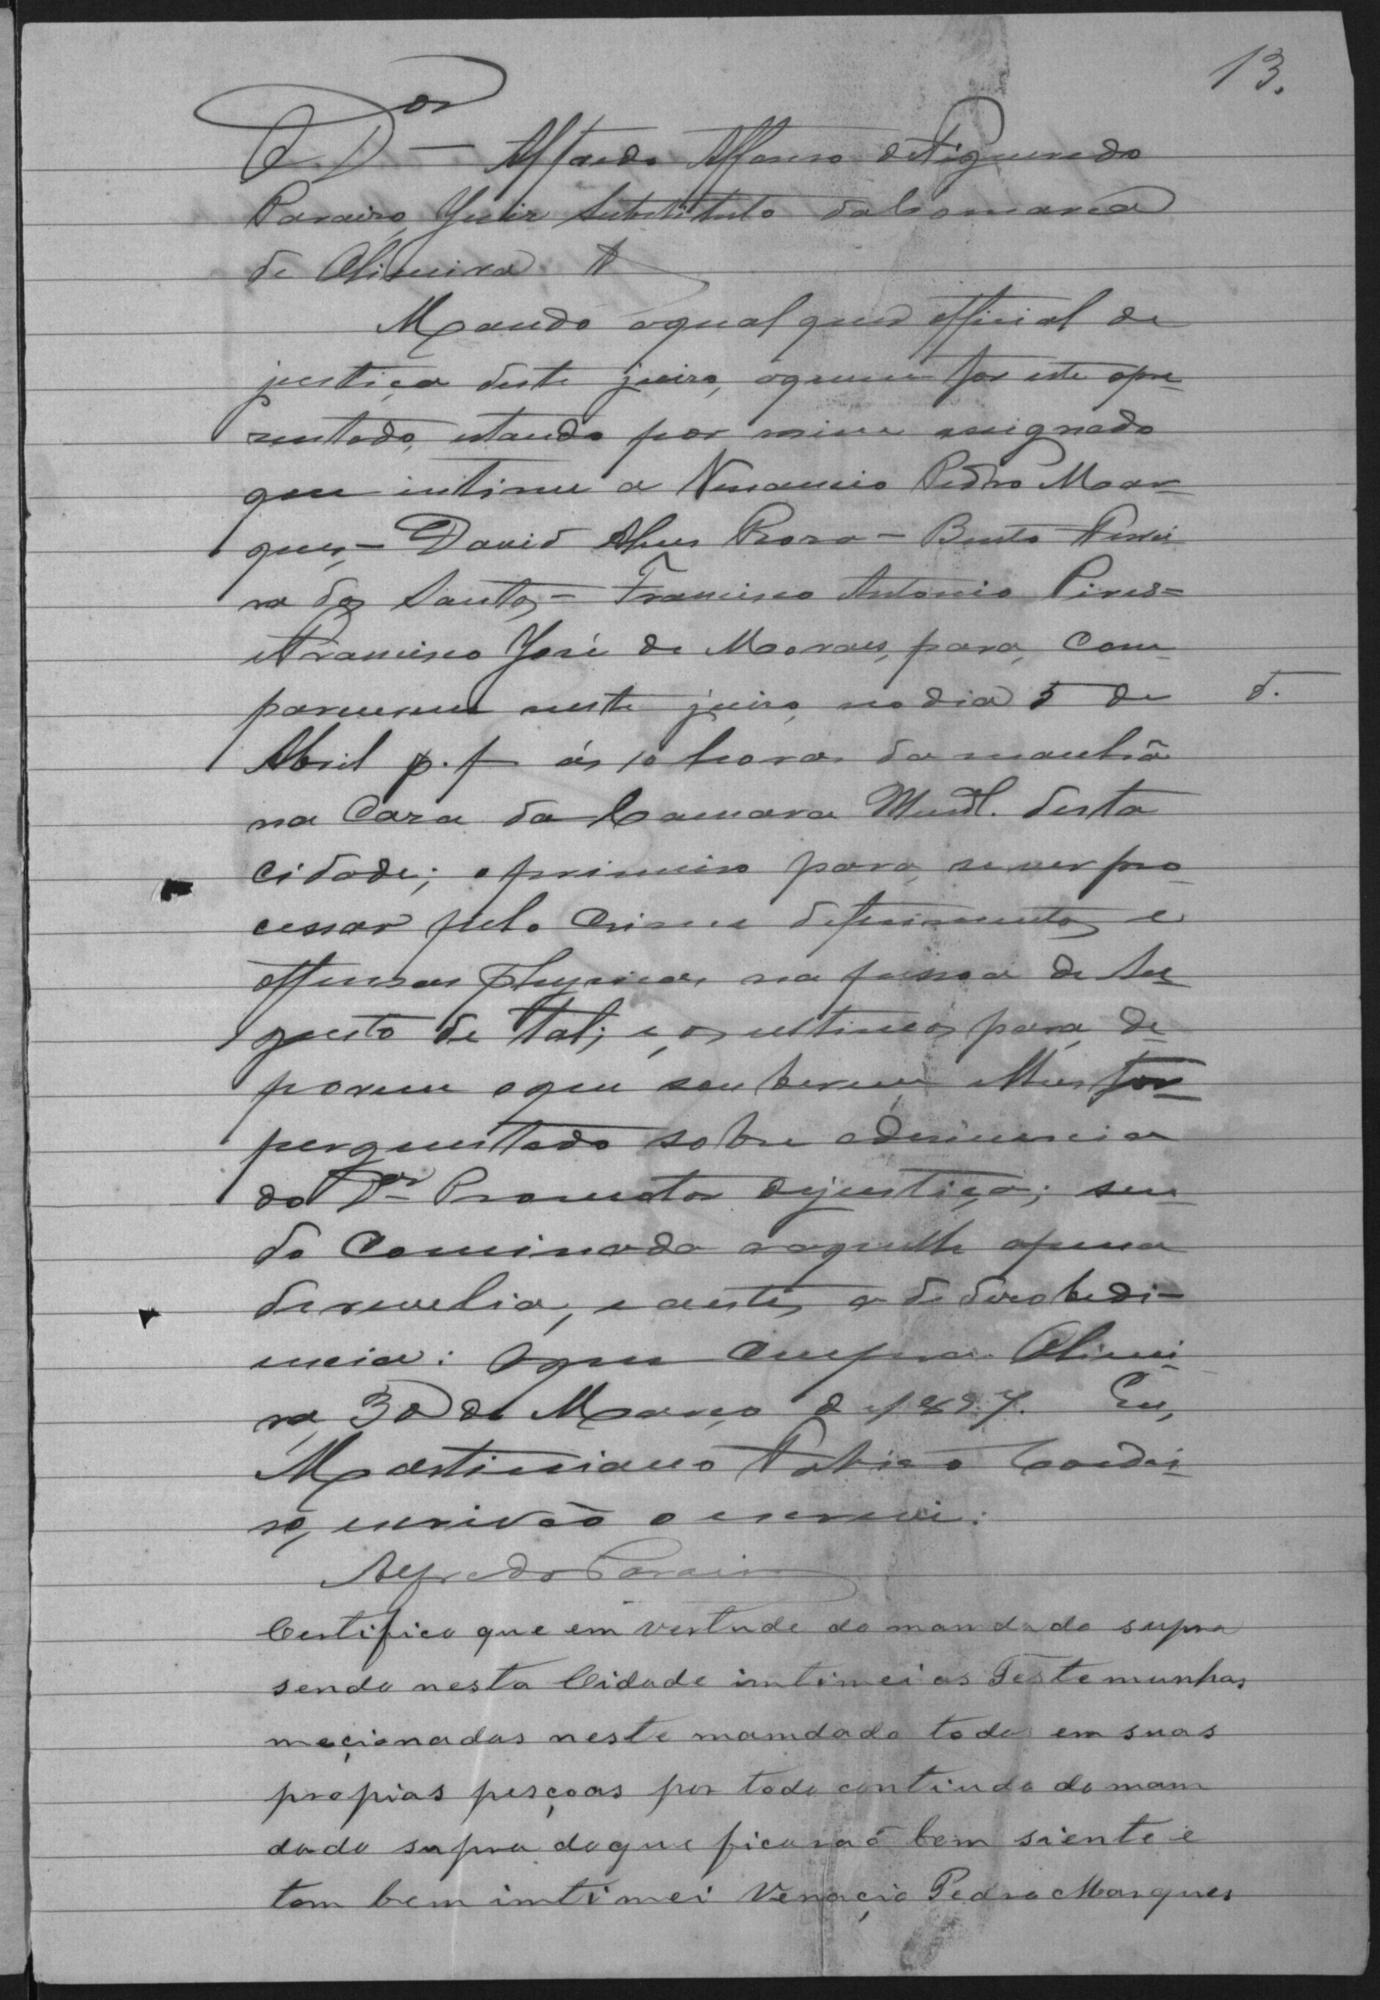 13.
O Dor Alfredo Affonso de Figueredo
Paraizo, Juiz Substituto da Comarca
de Oliveira &
Mando a qual quer official de
justiça deste juizo, a quem for este apre-
zentado, estando por mim assignado
que intime a Venancio Pedro Mar-
ques, - David Alves Roza - Bento Ferrei
ra dos Santos, - Francisco Antonio Pires =
e Francisco José de Moraes, para, com-
parecerem neste juizo, no dia 5 de
5.
Abril p. f. ás 10 horas da manhã
na Caza da Camara Munl. desta
cidade; o primeiro para se ver pro-
cessar pelo crime de ferimentos e
offensas physicas, na pessoa de Au-
gusto de Tal; e, os ultimos, para de-
porem o que souberem e lhes for
perguntado sobre a denuncia
do Dr. Promotor de justiça; sen-
do cominado a aquelle a pena
de revelia, e a estes, a de desobedi-
encia: O que cumpra. Olivei-
ra, 30 de Março de 1897. Eu,
Martiniano Fabiano Cordei-
ro, escrivão o escrevi.
Alfredo Paraizo
Certifico que em vertude do mandado supra
sendo nesta Cidade imtimei as Testemunhas
meçionadas neste mamdado todas em suas
propias pesçoas por todo contiudo do mam
dado supra do que ficaraõ bem siente e
tom bem imtimei Venaçio Pedro Marques